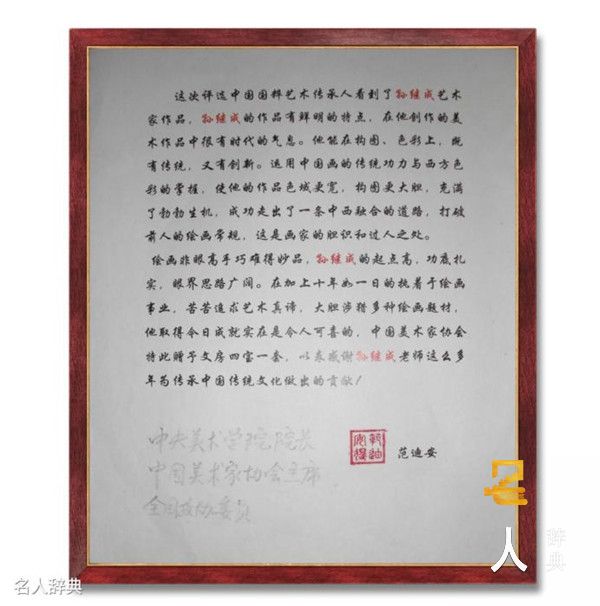 这次评选中国国粹艺术传承人看到了孙继成艺术
家作品，孙继成的作品有鲜明的特点，在他创作的美
术作品中很有时代的气息。他能在构图、色彩上，既
有传统，又有创新。运用中国画的传统功力与西方色
彩的掌握，使他的作品色域更宽，构图更大胆，充满
了勃勃生机，成功走出了一条中西融合的道路，打破
前人的绘画常规，这是画家的胆识和过人之处。
绘画非眼高手巧难得妙品，孙继成的起点高，功底扎
实，眼界思路广阔。在加上十年如一日的执着于绘画
事业，苦苦追求艺术真谛，大胆涉猎多种绘画题材，
他取得今日成就实在是令人可喜的，中国美术家协会
特此赠予文房四宝一套，以表感谢孙继成老师这么多
年为传承中国传统文化做出的贡献！
中央美术学院院长
中国美术家协会主席
全国政协委员
范迪安
名人辞典
名人辞典